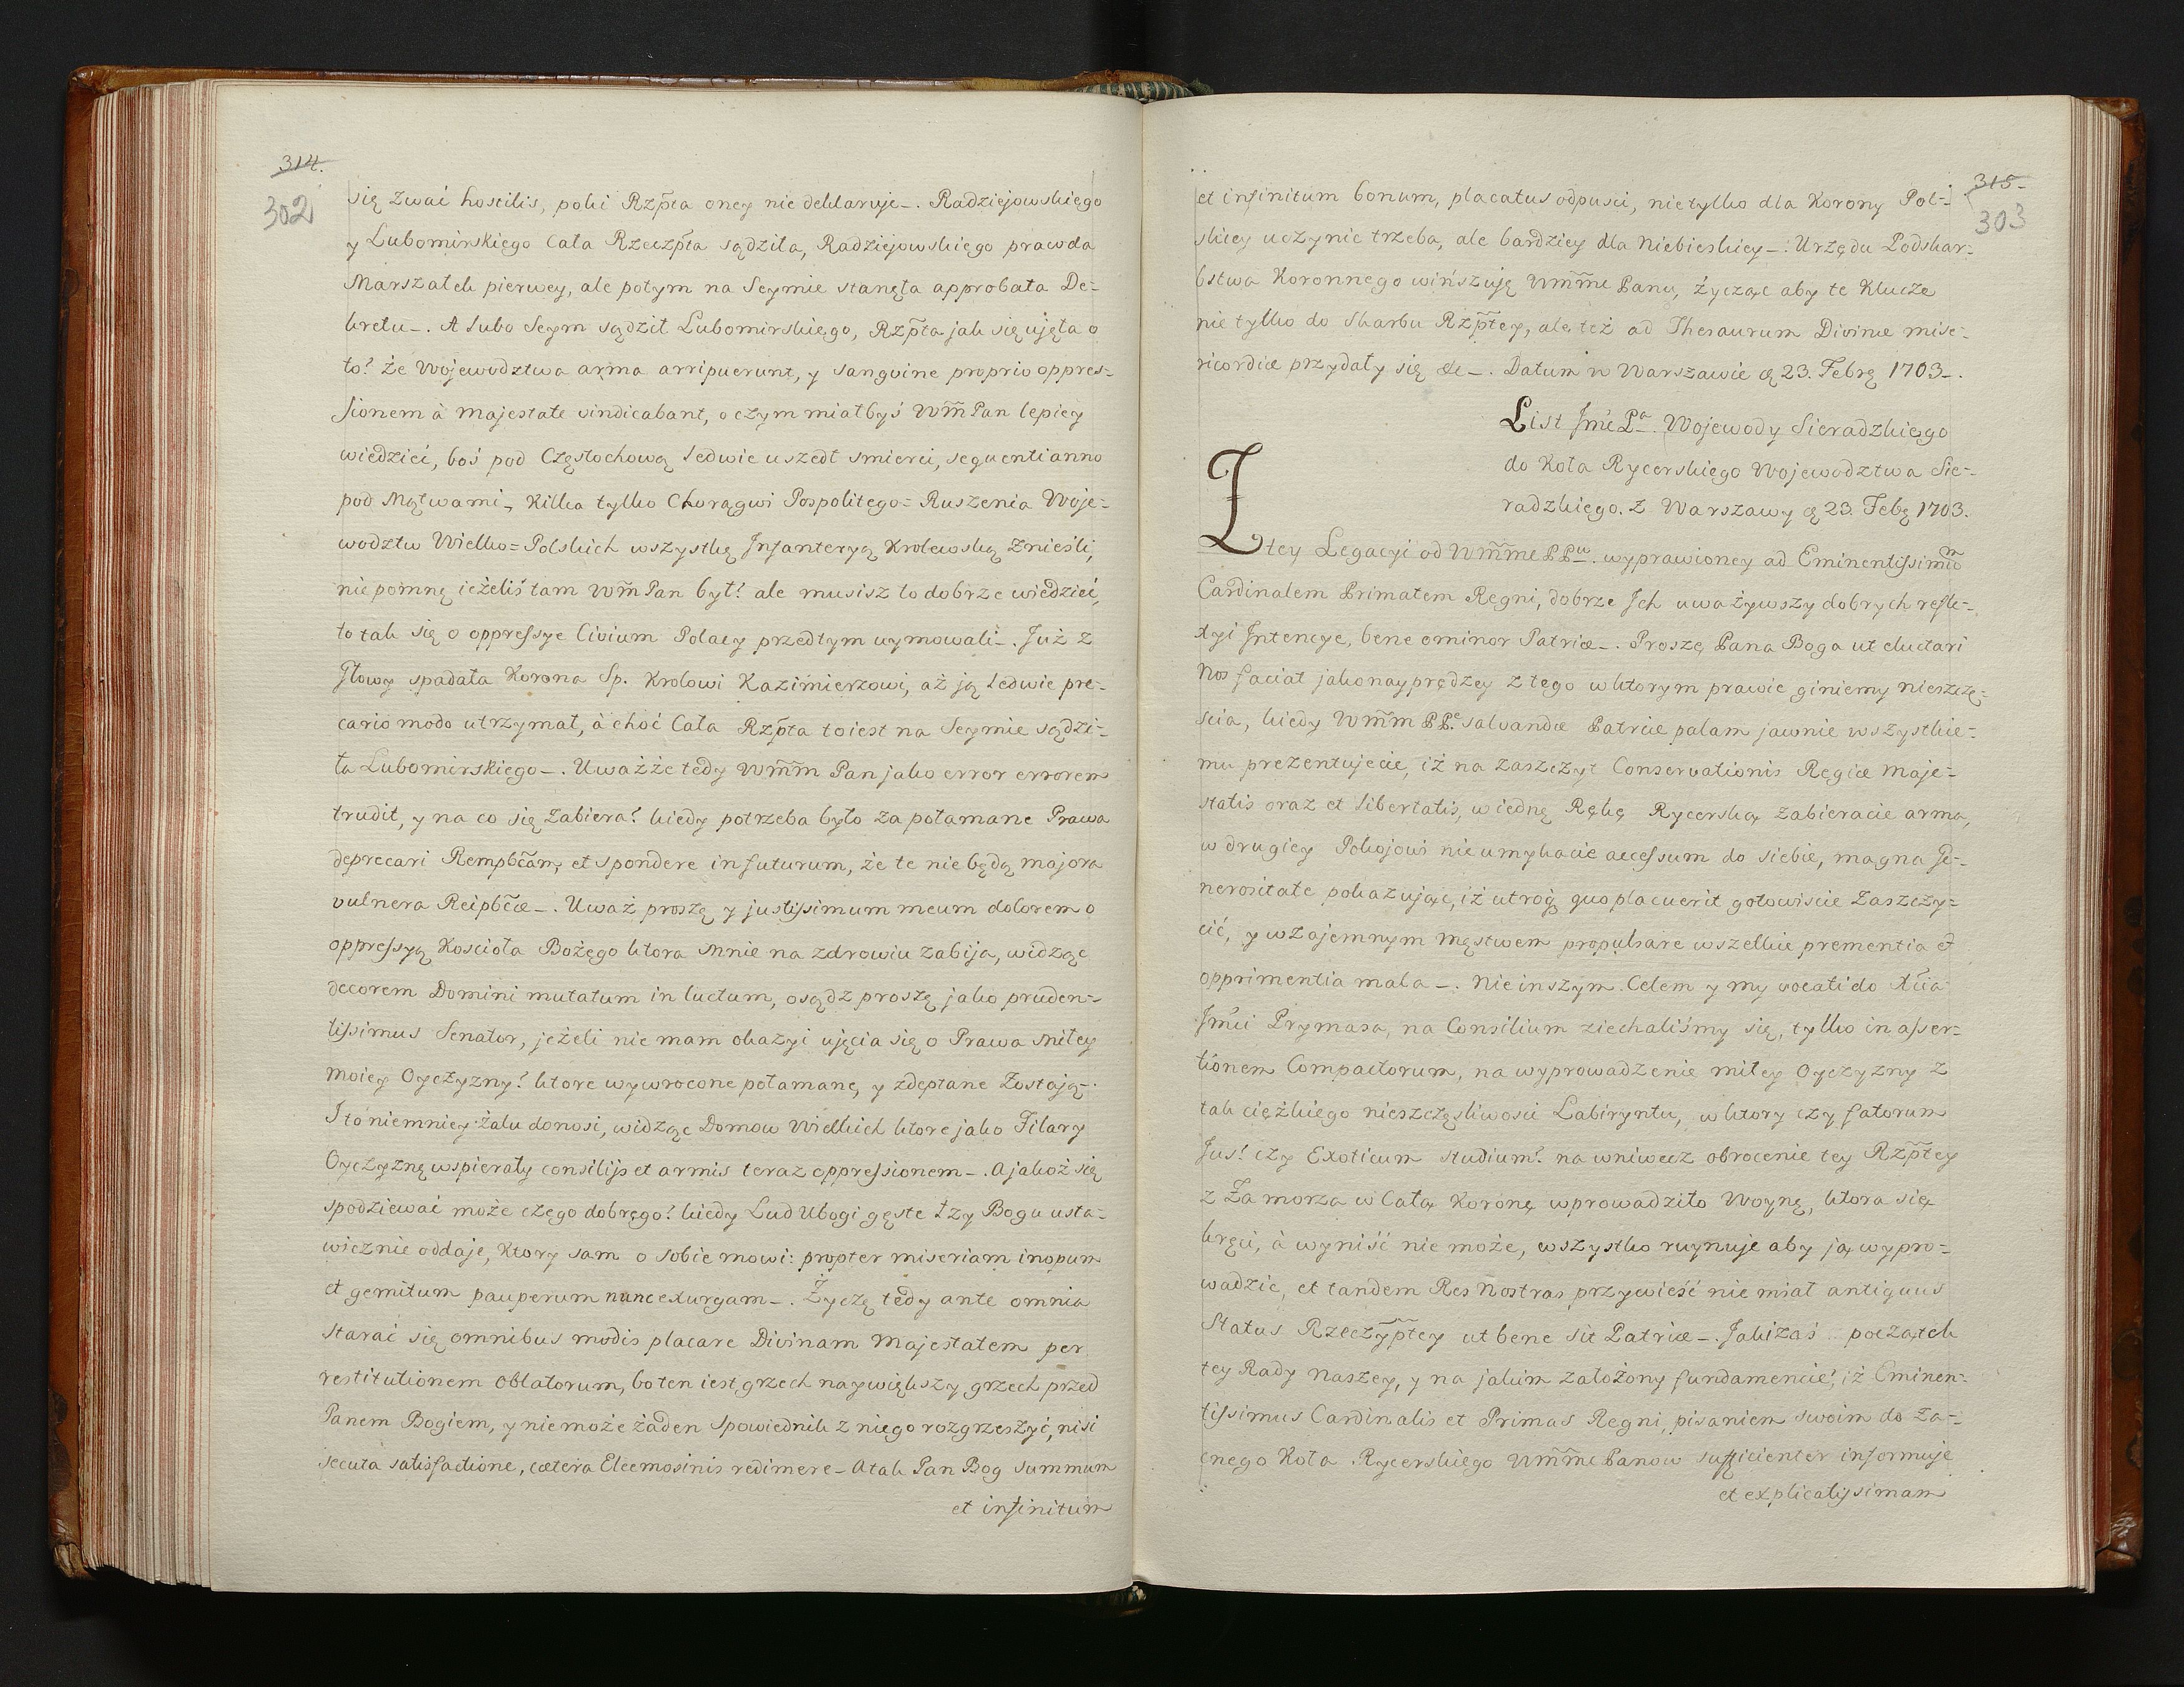 314.
302
się zwać hostilis, poki Rzp̃ta oney nie deklaruje_. Radziejowskiego
y Lubomirskiego Cała Rzeczp̃ta sądziła, Radziejowskiego prawda
Marszałek pierwey, ale potym na Seymie stanęła approbata De=
kretu_. A lubo Seym sądził Lubomirskiego, Rzp̃ta jak się ujęła o
to? że Wojewodztwa arma arripuerunt, y sangvine proprio oppres=
sionem à Majestate vindicabant, o czym miałbyś Wm̃ Pan lepiey
wiedzieć, boś pod Częstochową ledwie uszedł smierci, sequenti anno
pod Mątwami, Kilka tylko Chorągwi Pospolitego=Ruszenia Woje=
wodztw Wielko=Polskich wszystkę Infanteryą Krolewską znieśli,
nie pomnę jeżeliś tam Wm̃ Pan był? ale musisz to dobrze wiedzieć,
to tak się o oppressye Civium Polacy przedtym uymowali_. Już z
Głowy spadała Korona Sp. Krolowi Kazimierzowi, aż ją ledwie pre=
cario modo utrzymał, à choć Cała Rzp̃ta to iest na Seymie sądzi=
ła Lubomirskiego_. Uważże tedy Wm̃m̃ Pan jako error errorem
trudit, y na co się zabiera? kiedy potrzeba było za połamane Prawa
deprecari Rempb̃cam, et spondere in futurum, że te nie będą majora
vulnera Reipb̃cæ_. Uważ proszę y justissimum meum dolorem o
oppressyą Kościoła Bożego ktora mnie na zdrowiu zabija, widząc
decorem Domini mutatum in luctum, osądz proszę jako pruden=
tissimus Senator, jeżeli nie mam okazyi ujęcia się o Prawa miłey
moiey Oyczyzny? ktore wywrocone połamane, y zdeptane zostają_.
I to niemniey żalu donosi, widząc Domow Wielkich ktore jako Filary
Oyczyznę wspierały consilijs et armis teraz oppressionem_. A jakoż się
spodziewać może czego dobrego? kiedy Lud Ubogi gęste łzy Bogu usta=
wicznie oddaje, Ktory sam o sobie mowi: propter miseriam inopum
et gemitum pauperum nunc exurgam_. Życzę tedy ante omnia
starać się omnibus modis placare Divinam Majestatem per
restitutionem oblatorum, bo ten iest grzech naywiększy grzech przed
Panem Bogiem, y nie może żaden Spowiednik z niego rozgrzeszyć, nisi
secuta satisfactione, cætera Eleemosinis redimere_ A tak Pan Bog summum
et infinitum
315.
303
et infinitum bonum, placatus odpusci, nie tylko dla Korony Pol=
skiey uczynic trzeba, ale bardziey dla Niebieskiey_. Urzędu Podskar=
bstwa Koronnego winszuję Wm̃m̃e Panu, życząc aby te Klucze
nie tylko do Skarbu Rzp̃tey, ale też ad Thesaurum Divinæ mise=
ricordiæ przydały się &c_. Datum w Warszawie ą 23. Febrę 1703_.
List Jm̃ć Pa. Wojewody Sieradzkiego
do Koła Rycerskiego Wojewodztwa Sie=
radzkiego. z Warszawy ą 23. Febę 1703.
Z tey Legacyi od Wm̃m̃e PPw. wyprawioney ad Eminentissimum
Cardinalem Primatem Regni, dobrze Ich uważywszy dobrych refle=
xyi Intencye, bene ominor Patriæ_. Proszę Pana Boga ut eluctari
nos faciat jako nayprędzey z tego w ktorym prawie giniemy nieszczę=
scia, kiedy Wm̃m PPe. salvandæ Patriæ palam jawnie wszystkie=
mu prezentujecie, iż na zaszczyt Conservationis Regiæ Maje=
statis oraz et libertatis, w iednę Rękę Rycerską zabieracie arma,
w drugiey Pokojowi nie umykacie accessum do siebie, magna Ge=
nerositate pokazując, iż utroq̨ quo placuerit gotowiscie zaszczy=
cić, y wzajemnym męstwem propulsare wszelkie prementia et
opprimentia mala_. Nie inszym Celem y my vocati do Xcia
Jm̃ci Prymasa, na Consilium ziechaliśmy się, tylko in asser=
tionem Compactorum, na wyprowadzenie miłey Oyczyzny z
tak ciężkiego nieszczęsliwosci Labiryntu, w ktory czy fatorum
Jus? czy Exoticum studium? na wniwecz obrocenie tey Rzp̃tey
z Za morza w Całą Koronę wprowadziło Woynę, ktora się
kręci, à wyniść nie może, wszystko ruynuje aby ją wypro=
wadzic, et tandem Res Nostras przywieść nie miał antiquus
Status Rzeczyp̃tey ut bene sit Patriæ_. Jakizaś początek
tey Rady naszey, y na jakim założony fundamencie? iż Eminen=
tissimus Cardinalis et Primas Regni, pisaniem swoim do Za=
cnego Koła Rycerskiego Wm̃m̃e Panow sufficienter informuje
et explicatissimam